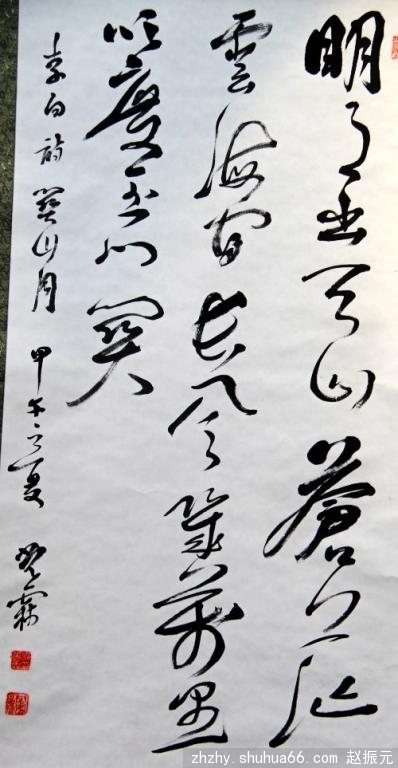 明月出天山蒼茫
雲海間長風幾萬里
吹度玉门關
李白詩關山月 甲午之夏
zhzhy.shuhua66.com 赵振元